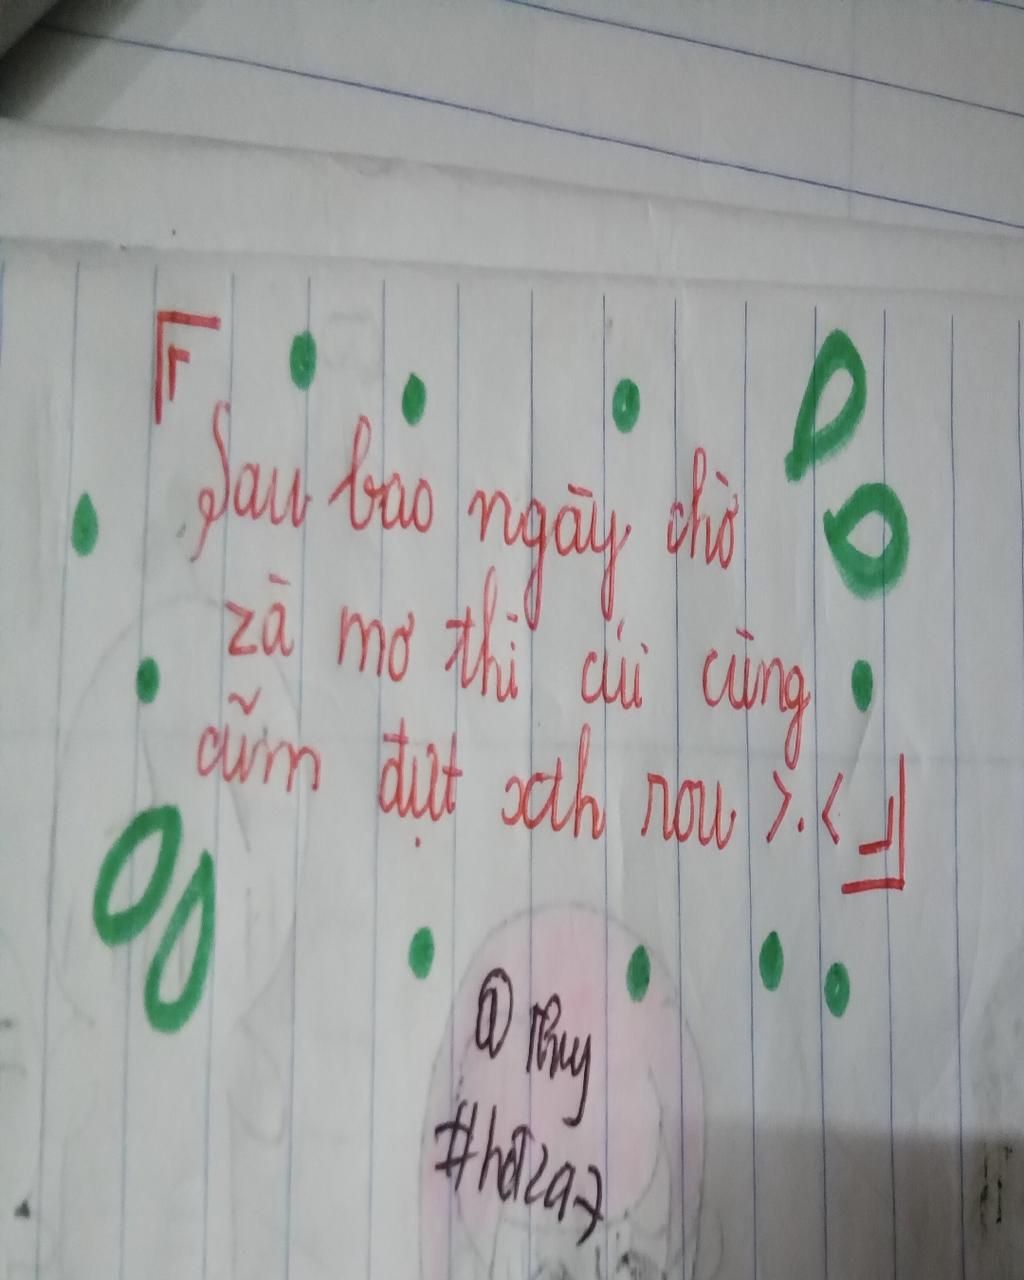 『Sau bao ngày chờ
zà mơ thì cúi cùng
cũm đựt xinh rou >.<』
@ Thuy